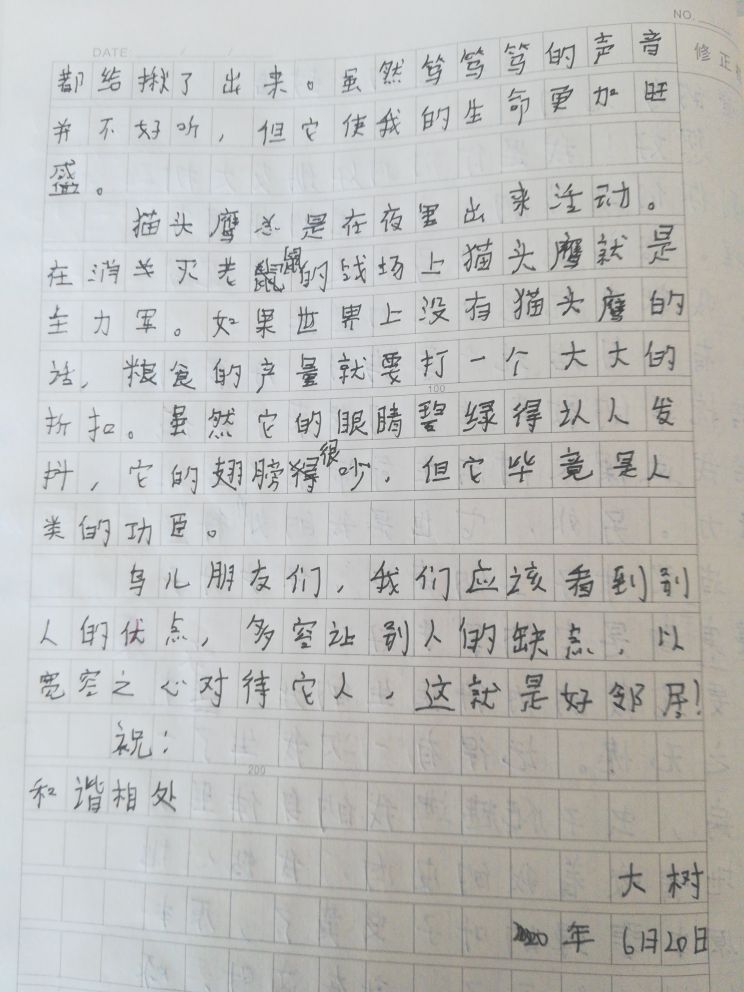 NO.
DATE: / /
修正
都给揪了出来。虽然笃笃笃的声音
并不好听，但它使我的生命更加旺
盛。
猫头鹰总是在夜里出来活动。
在消灭老鼠的战场上猫头鹰就是
主力军。如果世界上没有猫头鹰的
话，粮食的产量就要打一个大大的
100
折扣。虽然它的眼睛碧绿得以人发
抖，它的翅膀很吵，但它毕竟是人
类的功臣。
鸟儿朋友们，我们应该看到别
人的优点，多容让别人的缺点，以
宽容之心对待它人，这就是好邻居!
祝：
200
和谐相处
大树
2020年6月20日